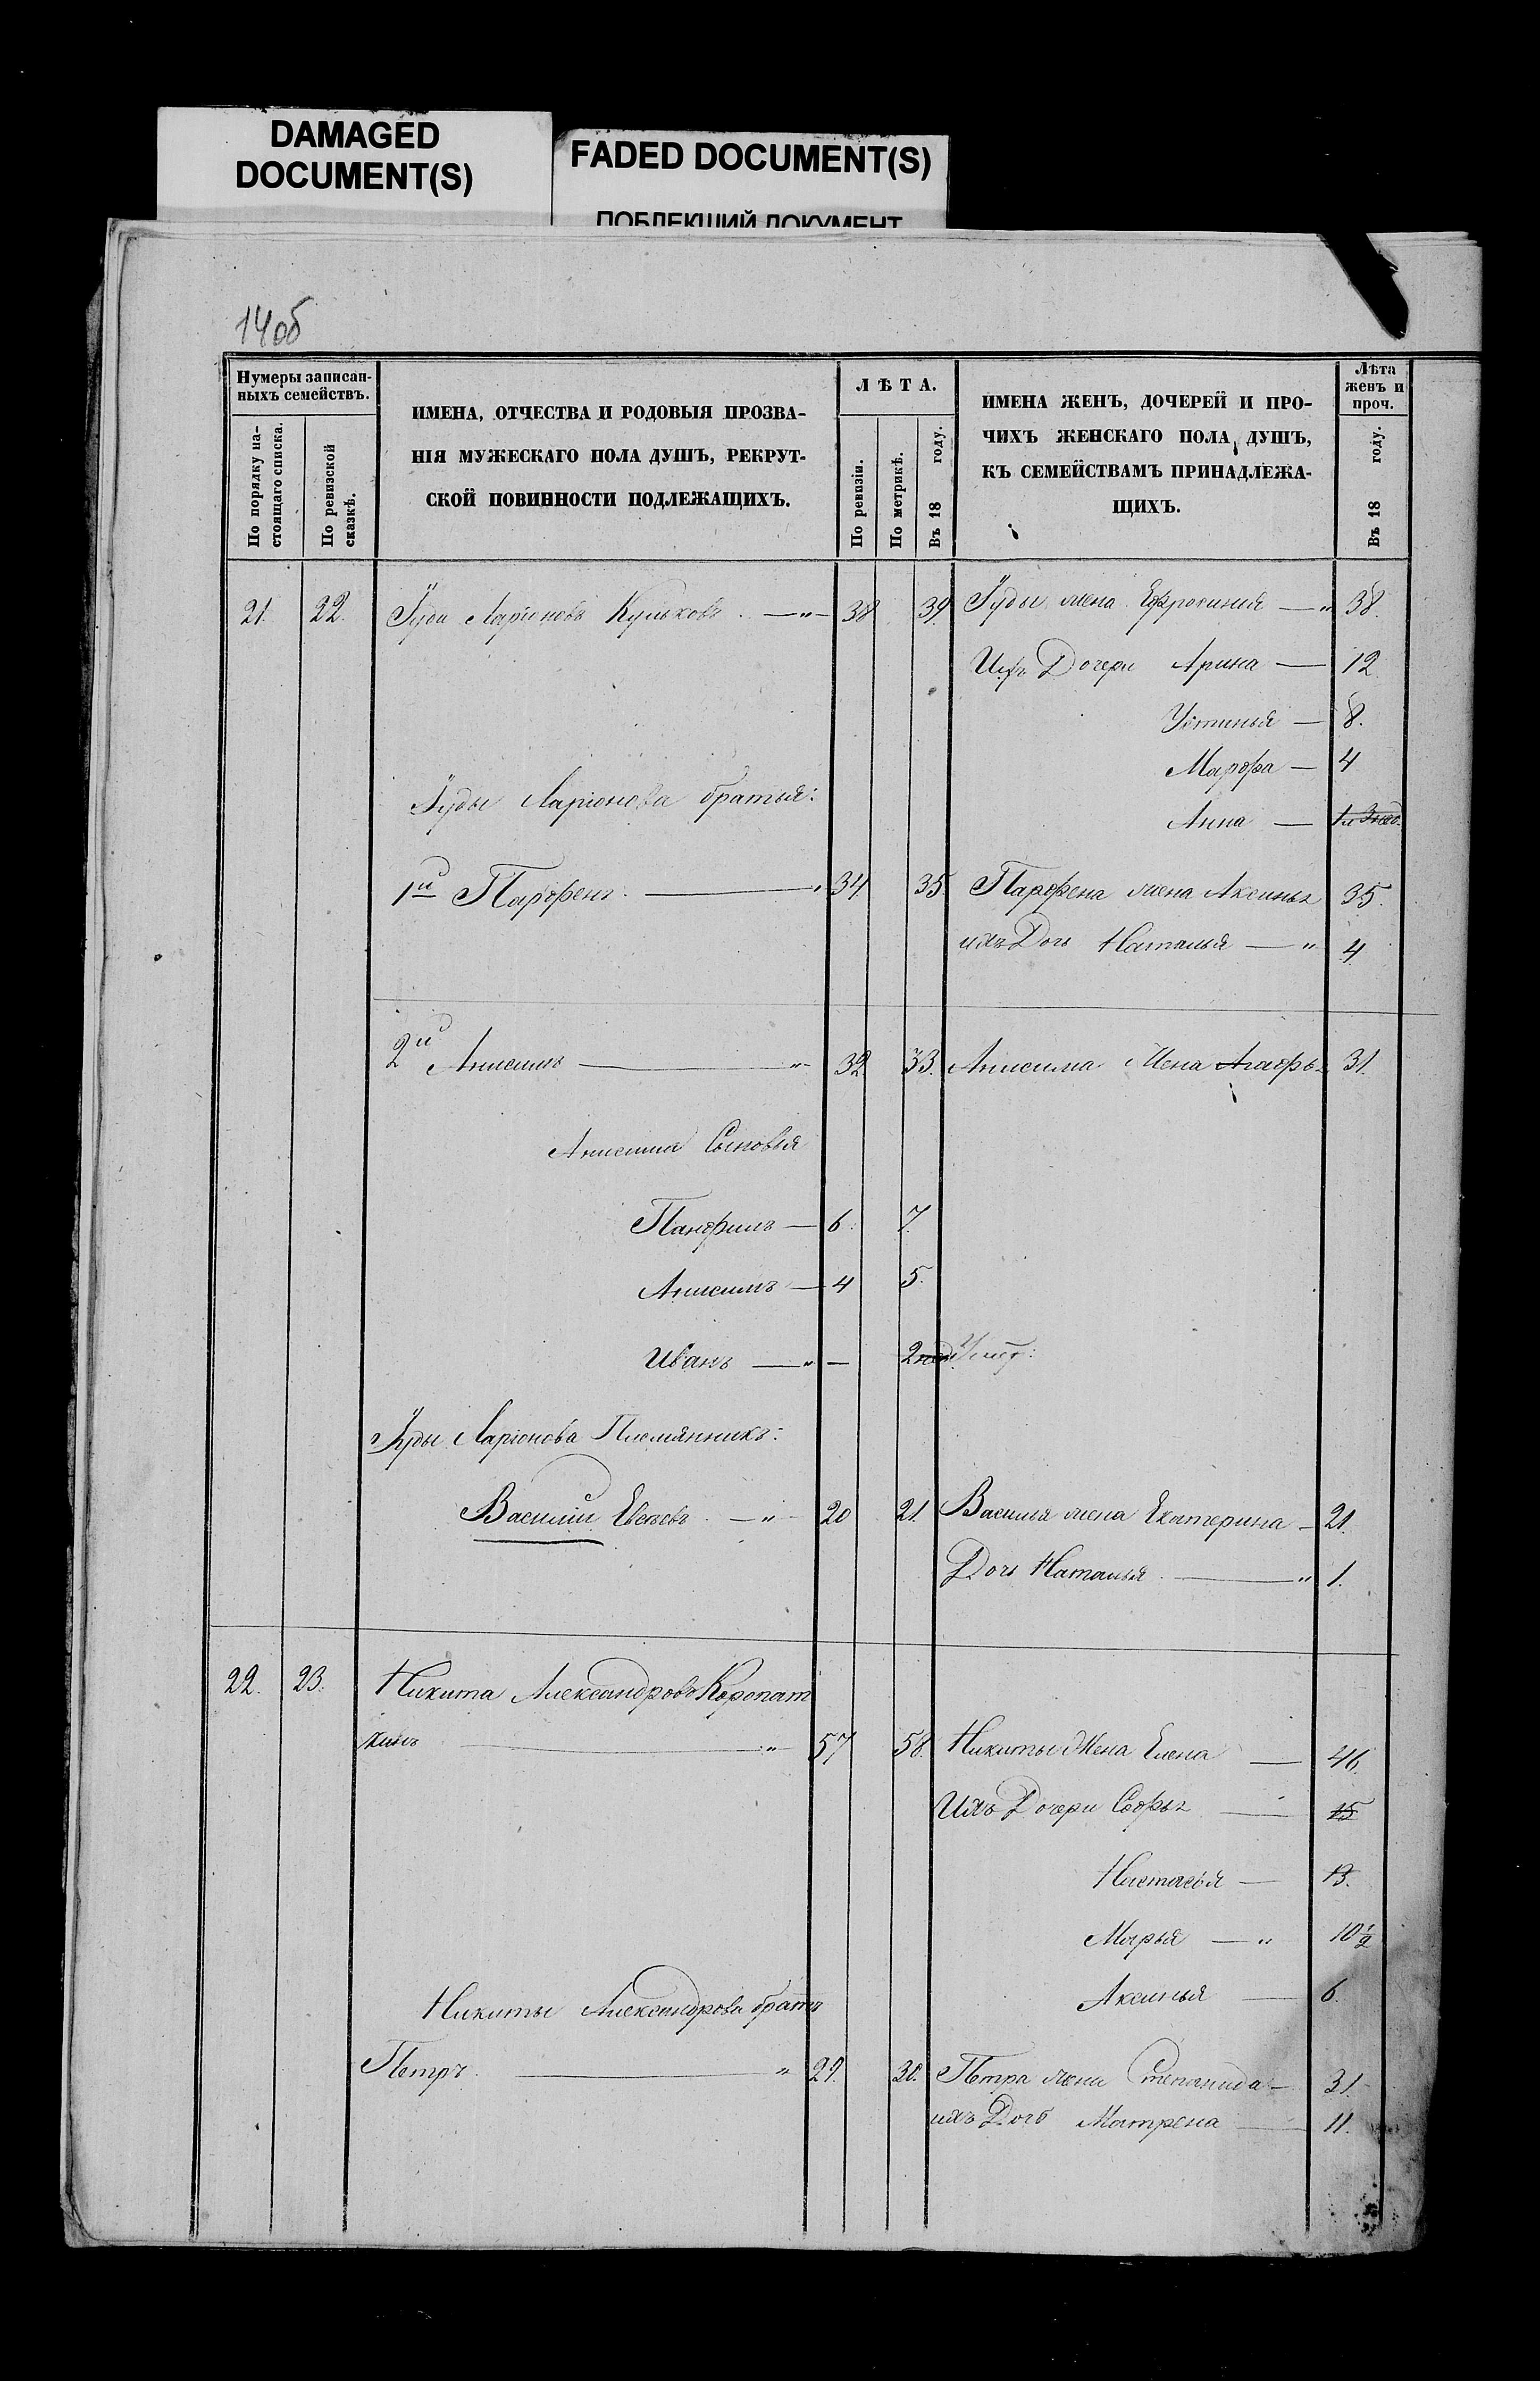 DAMAGED
DOCUMENT(S)
FADED DOCUMENT(S)
ПОБЛЕКШИЙ ДОКУМЕНТ
14об
Нумеры записан-
ныхъ семействъ.
По порядку на-
стоящаго списка.
По ревизской
сказкѣ.
ИМЕНА, ОТЧЕСТВА И РОДОВЫЯ ПРОЗВА-
НІЯ МУЖЕСКАГО ПОЛА ДУШЪ, РЕКРУТ-
СКОЙ ПОВИННОСТИ ПОДЛЕЖАЩИХЪ.
ЛѢТА.
По ревизіи.
По метрикѣ.
Въ 18 году.
ИМЕНА ЖЕНЪ, ДОЧЕРЕЙ И ПРО-
ЧИХЪ ЖЕНСКАГО ПОЛА ДУШЪ,
КЪ СЕМЕЙСТВАМЪ ПРИНАДЛЕЖА-
ЩИХЪ.
Лѣта
женъ и
проч.
Въ 18 году.
21. 22. Іуда Ларіоновъ Кульковъ — " — 38 39. Іуды жена Ефросинія — " 38.
Ихъ Дочери Арина — 12
Устинья — 8.
Марфа — 4
Іуды Ларіонова братья:
Анна —
1й Парфенъ — " 34. 35. Парфена жена Аксинья 35.
ихъ Дочь Наталья — " 4.
2й Анисимъ — " 32. 33. Анисима Жена Агафья 31.
Анисима Сыновья
Панфилъ — 6. 7.
Анисимъ — 4 5.
Иванъ — " — 2 нед.
Іуды Ларіонова Племянникъ:
Василій — " 20 21. Василья жена Екатерина — 21.
Дочь Наталья — " 1.
22. 23. Никита Александровъ Коропат
кинъ — " 57 58. Никиты Жена Елена — 46.
Ихъ Дочери Софья — 15
Настасья — 13.
Марья — " 10½
Аксинья — 6.
Никиты Александрова братъ
Петръ — " 29. 30. Петра жена Степанида — 31.
ихъ Дочь Матрена — 11.